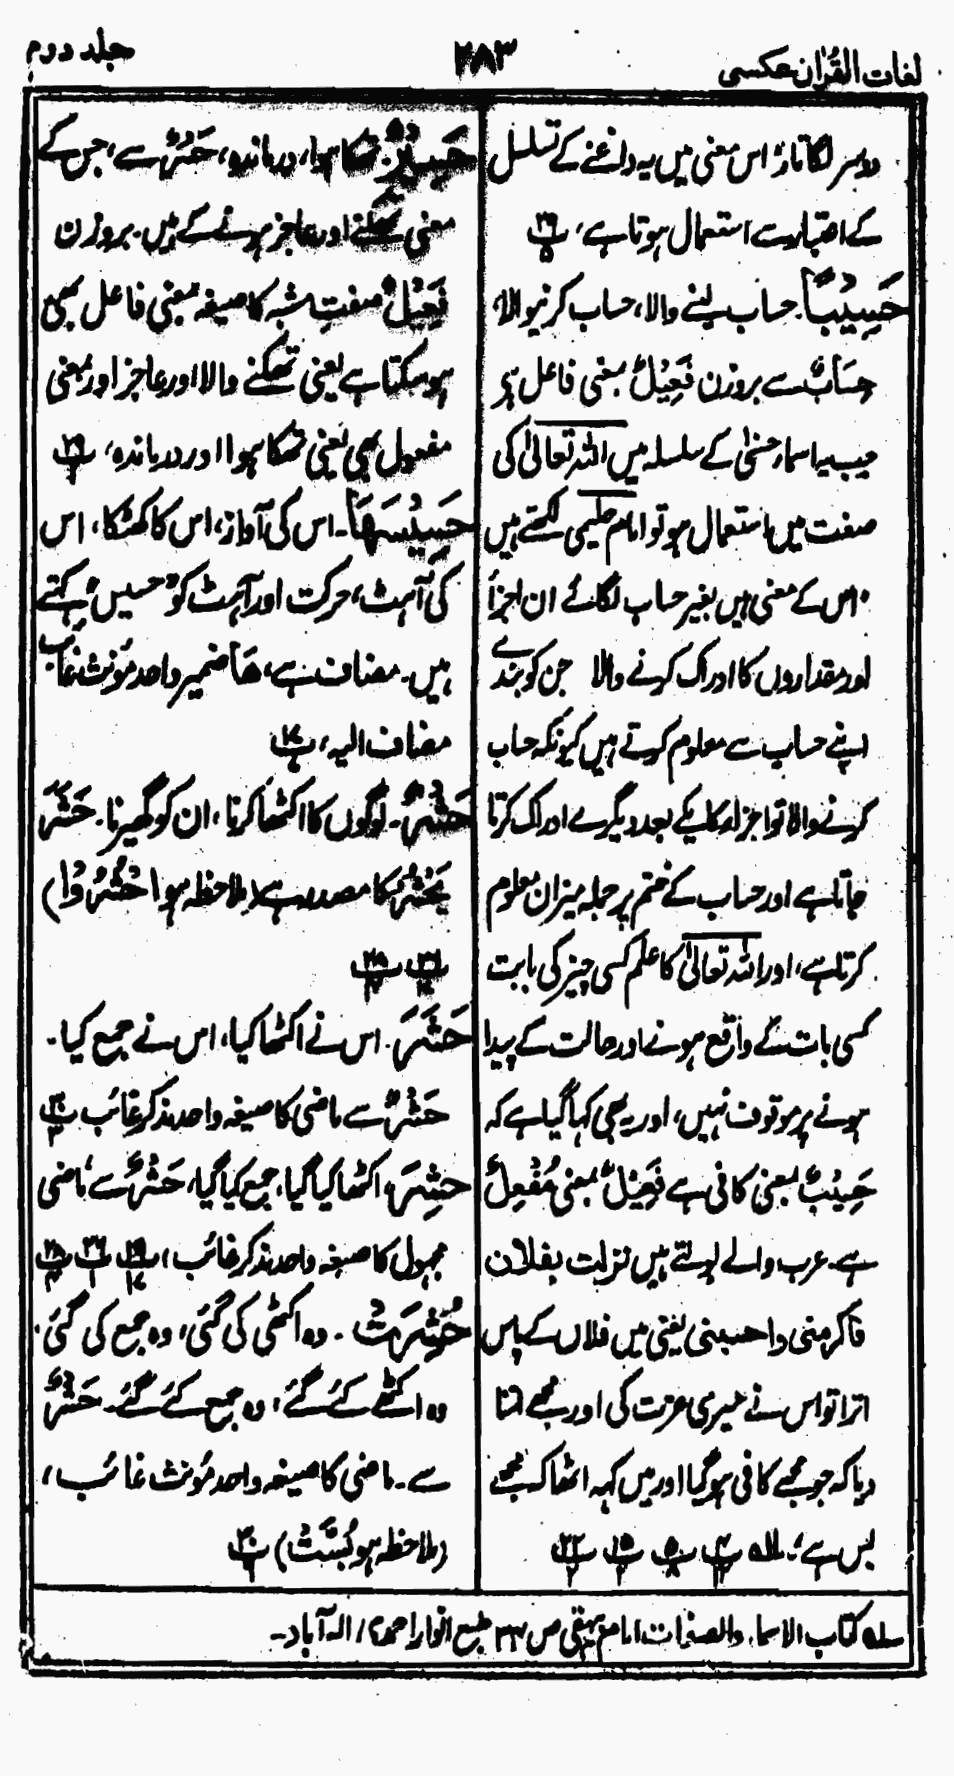 لغات القرآن عکسی
۲۸۳
جلد دوم
دوسرا لگاتار، اس معنی میں یہ داغنے کے تسلسل
کے اعتبار سے استعمال ہوتا ہے،
حَسِیْبًا۔ حساب لینے والا، حساب کرنیوالا،
حِسَابٌ سے بروزن فَعِیْلٌ بمعنی فاعل ہر
جب یہ اسماء حسنیٰ کے سلسلہ میں اللہ تعالیٰ کی
صفت میں استعمال ہو تو امام حلیمی لکھتے ہیں
"اس کے معنی ہیں بغیر حساب لگائے ان اجزأ
اور مقداروں کا ادراک کرنے والا جن کو بندے
اپنے حساب سے معلوم کرتے ہیں کیونکہ حساب
کرنے والا تو اجزاء کا یکے بعد دیگرے ادراک کرتا
جاتا ہے اور حساب کے ختم پر جملہ میزان معلوم
کرتا ہے، اور اللہ تعالیٰ کا علم کسی چیز کی بابت
کسی بات کے واقع ہونے اور حالت کے پیدا
ہونے پر موقوف نہیں، اور یہ بھی کہا گیا ہے کہ
حَسِیْبٌ بمعنی کافی ہے فَعِیْلٌ بمعنی مُفْعِلٌ
ہے۔ عرب والے بولتے ہیں نزلت بفلان
فاکرمنی واحسبنی یعنی میں فلاں کے پاس
اترا تو اس نے میری عزت کی اور مجھے اتنا
دیا کہ جو مجھے کافی ہو گیا اور میں کہہ اٹھا کہ مجھے
بس ہے"۔ لہ
حَسِیْرٌ۔ تھکا ہوا، درماندہ، حَسْرٌ سے، جس کے
معنی تھکنے اور عاجز ہونے کے ہیں۔ بروزن
فَعِیْلٌ صفت مشبہ کا صیغہ بمعنی فاعل بھی
ہو سکتا ہے یعنی تھکنے والا اور عاجز اور بمعنی
مفعول بھی یعنی تھکا ہوا اور درماندہ،
حَسِیْسَهَا۔ اس کی آواز، اس کا کھٹکا، اس
کی آہٹ، حرکت اور آہٹ کو "حسیس" کہتے
ہیں۔ مضاف ہے، ھَا ضمیر واحد مؤنث غائب
مضاف الیہ،
حَشْرٌ۔ لوگوں کا اکٹھا کرنا، ان کو گھیرنا۔ حَشَرَ
یَحْشُرُ کا مصدر ہے (ملاحظہ ہو اُحْشُرُوْا)
حَشَرَ۔ اس نے اکٹھا کیا، اس نے جمع کیا۔
حَشْرٌ سے ماضی کا صیغہ واحد مذکر غائب
حُشِرَ، اکٹھا کیا گیا، جمع کیا گیا، حَشْرٌ سے ماضی
مجہول کا صیغہ واحد مذکر غائب،
حُشِرَتْ۔ وہ اکٹھی کی گئی، وہ جمع کی گئی،
وہ اکٹھے کئے گئے، وہ جمع کئے گئے۔ حَشْرٌ
سے۔ ماضی کا صیغہ واحد مؤنث غائب،
(ملاحظہ ہو بُسَّتْ)
لہ کتاب الاسماء والصفات امام بیہقی ص طبع انوار احمدی، الہ آباد۔